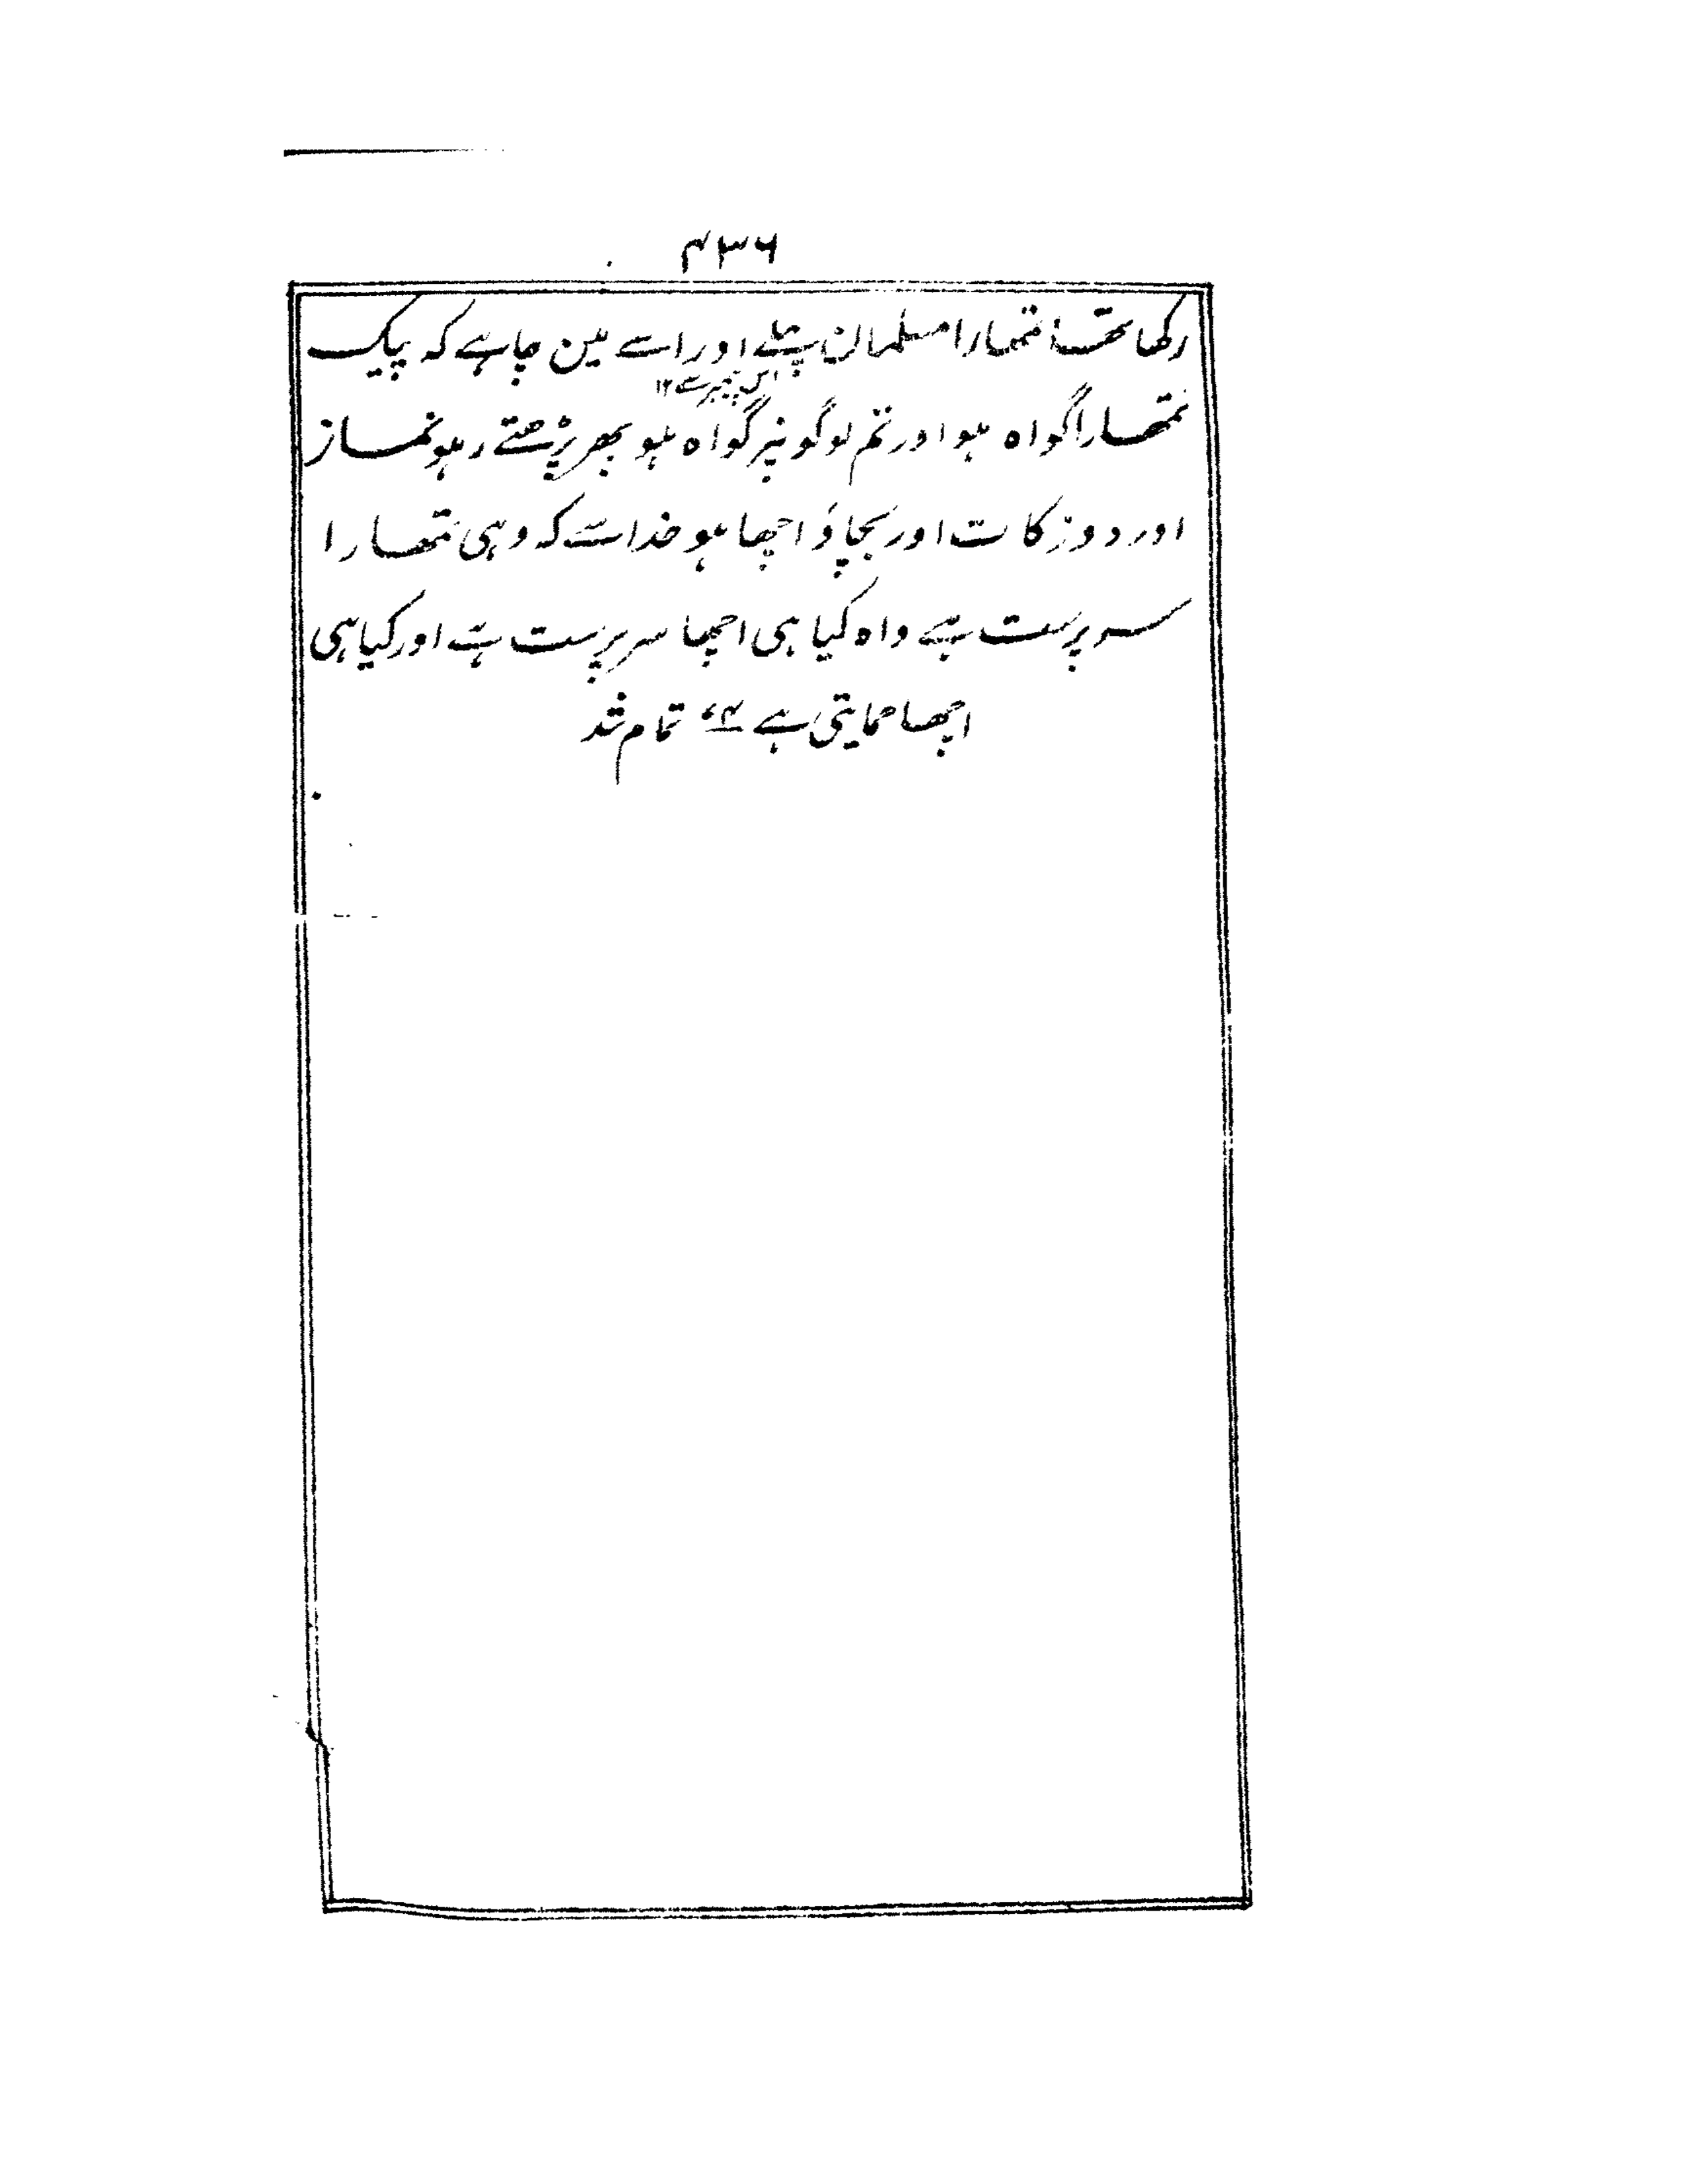 ۴۳۶
رکھا تھا تمھارا مسلمان پہلے اور اسے مین چاہے کہ پیک
اس پیمبر سے ۱۲
تمھارا گواہ ہو اور تم لوگونپر گواہ ہو پھر پڑھتے رہو نماز
اور دو زکات اور بچاؤ اچھا ہو خدا سے کہ وہی تمھارا
سرپرست ہے واہ کیا ہی اچھا سرپرست ہے اور کیا ہی
اچھا حمایتی ہے تمام شد